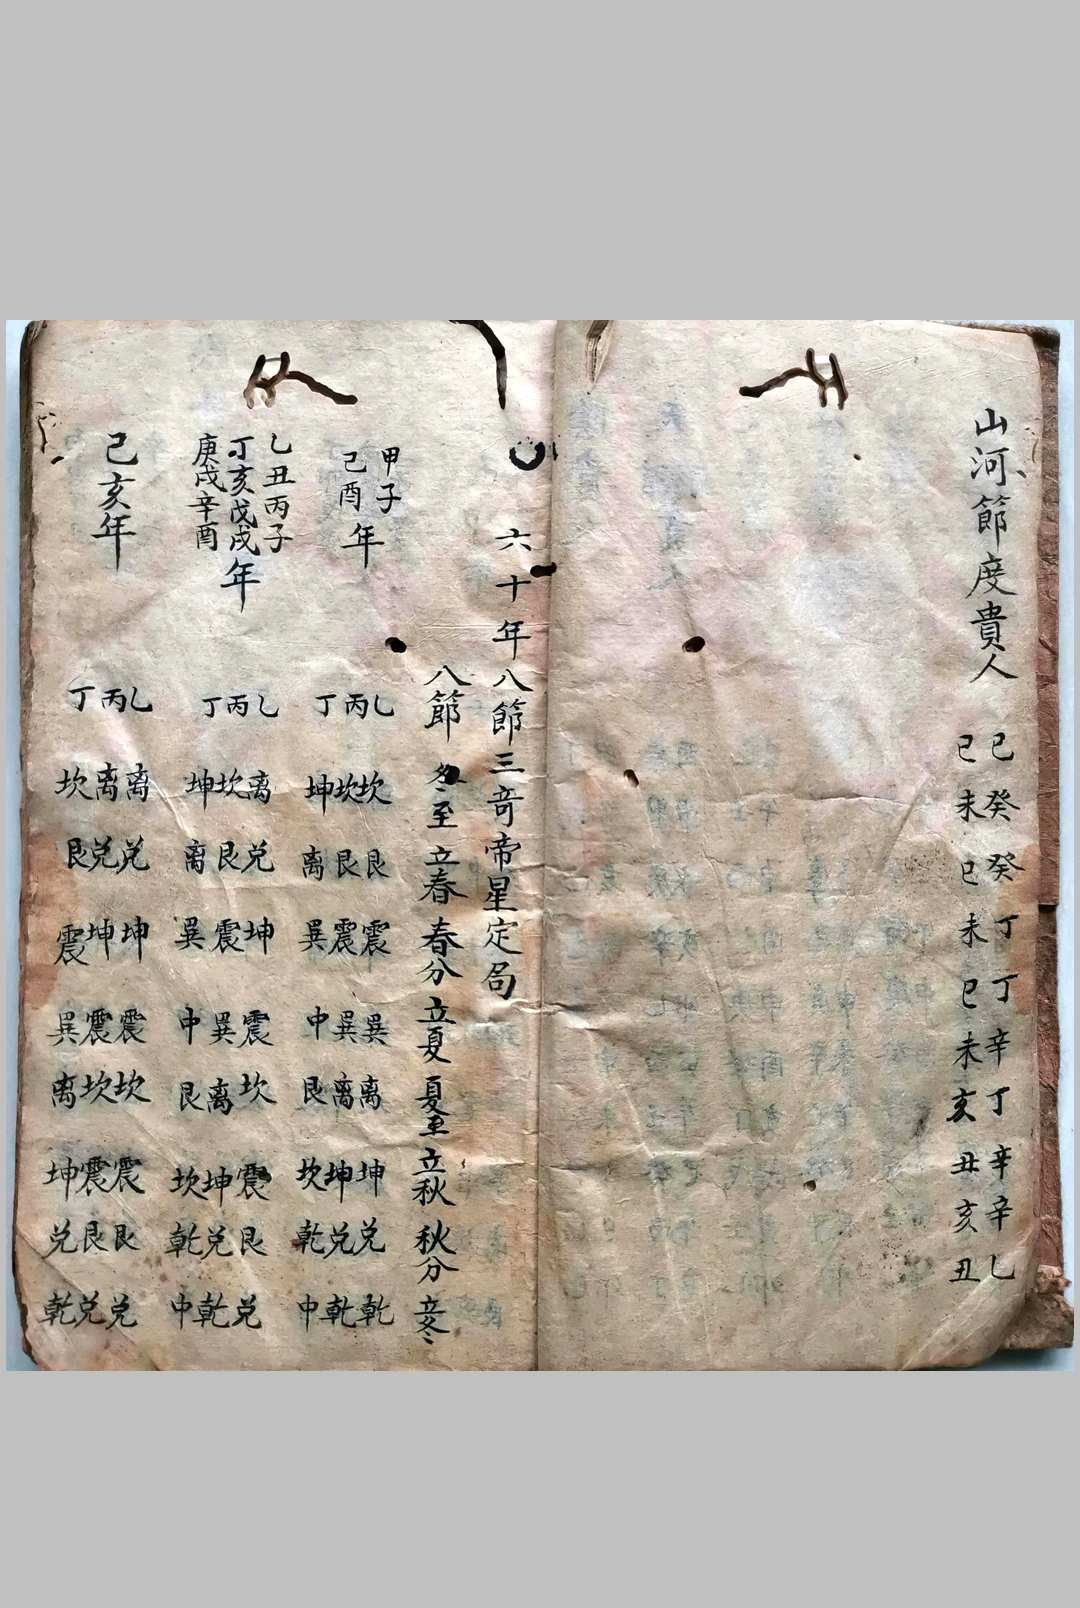 山河節度貴人
巳癸癸丁丁辛丁辛辛乙
巳未巳未巳未亥丑亥丑
六十年八節三奇帝星定局
八節 冬至 立春 春分 立夏 夏至 立秋 秋分 立冬
甲子
己酉
年
乙 坎 艮 震 巽 离 坤 兑 乾
丙 坎 艮 震 巽 离 坤 兑 乾
丁 坤 离 巽 中 艮 坎 乾 中
乙丑丙子
丁亥戊戌
庚戌辛酉
年
乙 离 兑 坤 震 坎 震 艮 兑
丙 坎 艮 震 巽 离 坤 兑 乾
丁 坤 离 巽 中 艮 坎 乾 中
己亥年
乙 离 兑 坤 震 坎 震 艮 兑
丙 离 兑 坤 震 坎 震 艮 兑
丁 坎 艮 震 巽 离 坤 兑 乾